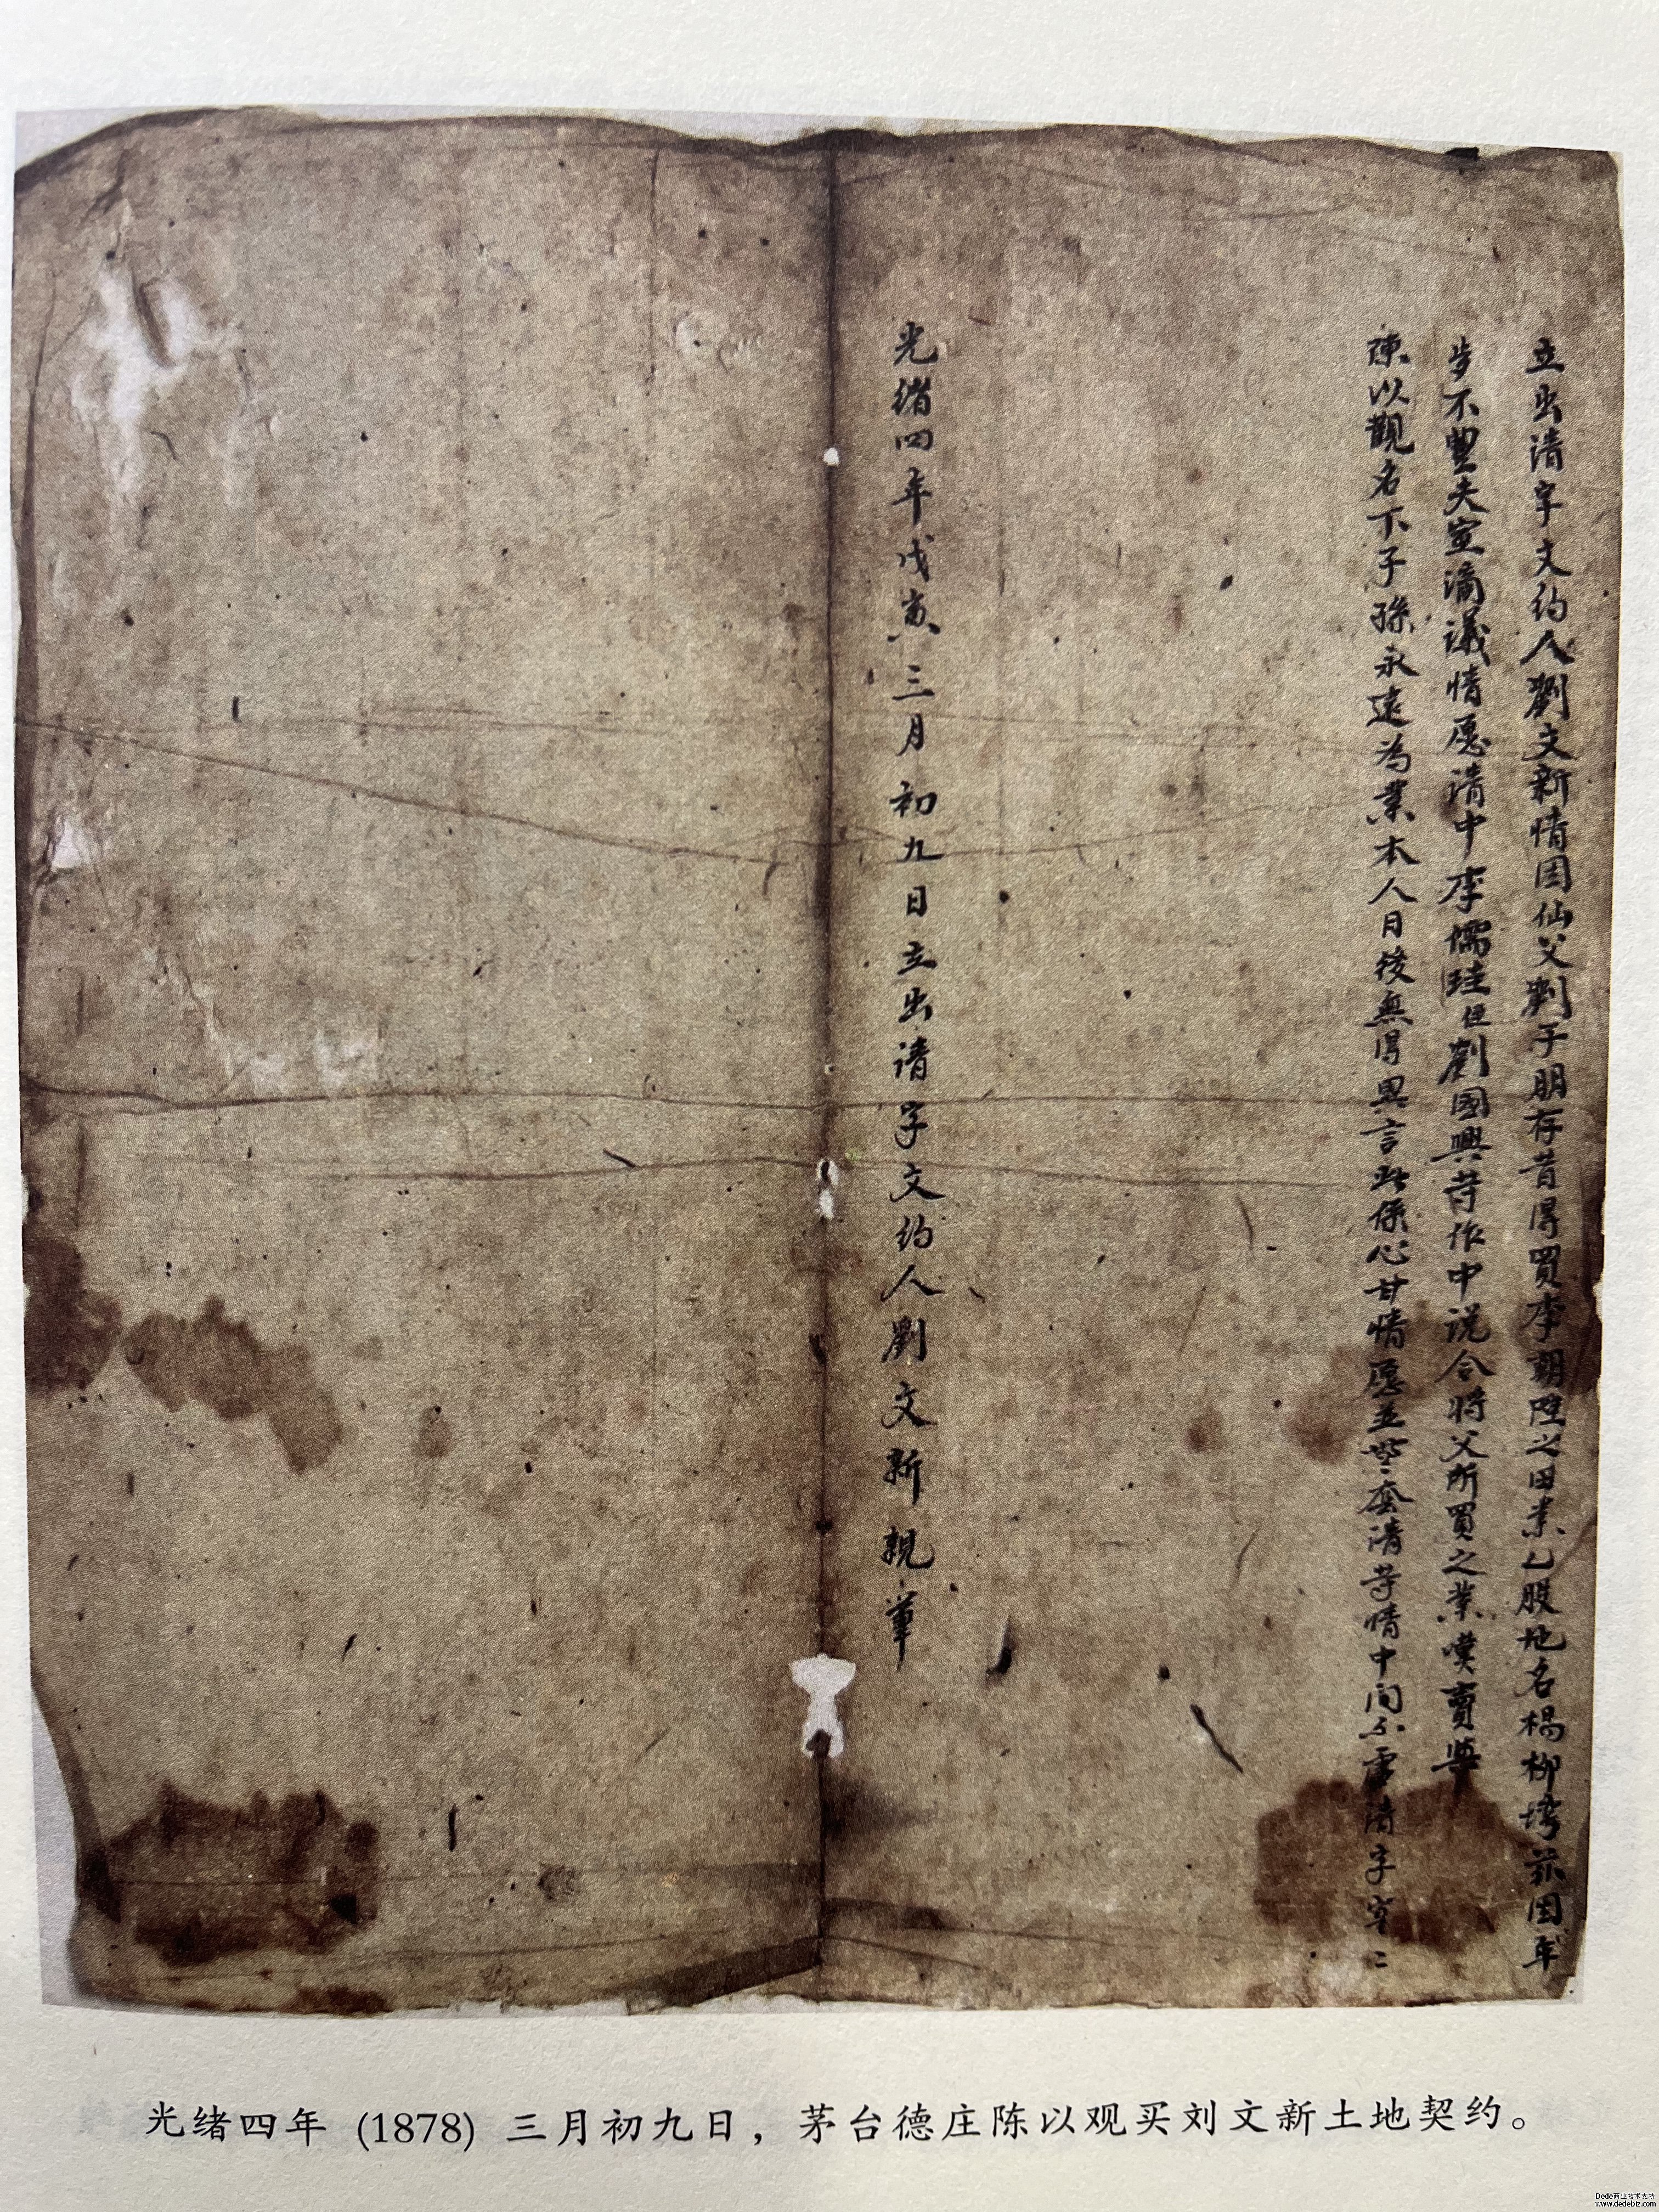 立出清字文约人劉文新情因仙父劉子朋存昔得買李朝陞之田業乙股地名楊柳塆茲因年
歩不豐夫室滴議情愿清中李儒珪劉國興等作中说合将父所買之業嘆賣與
陳以觀名下子孫永遠為業本人日後無得異言此係心甘情愿並無套清等情中间不虛清字為二
光绪四年戊寅三月初九日立出请字文约人劉文新親筆
光绪四年 (1878) 三月初九日，茅台德庄陈以观买刘文新土地契约。
Dede商业技术支持
www.dedebiz.com